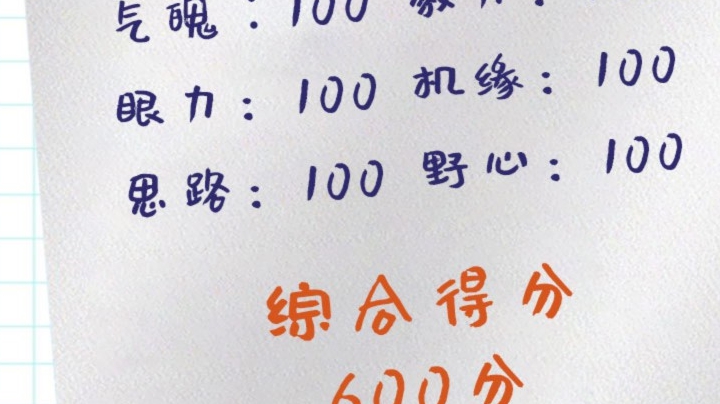 气魄：100
眼力：100 机缘：100
思路：100 野心：100
综合得分
600分